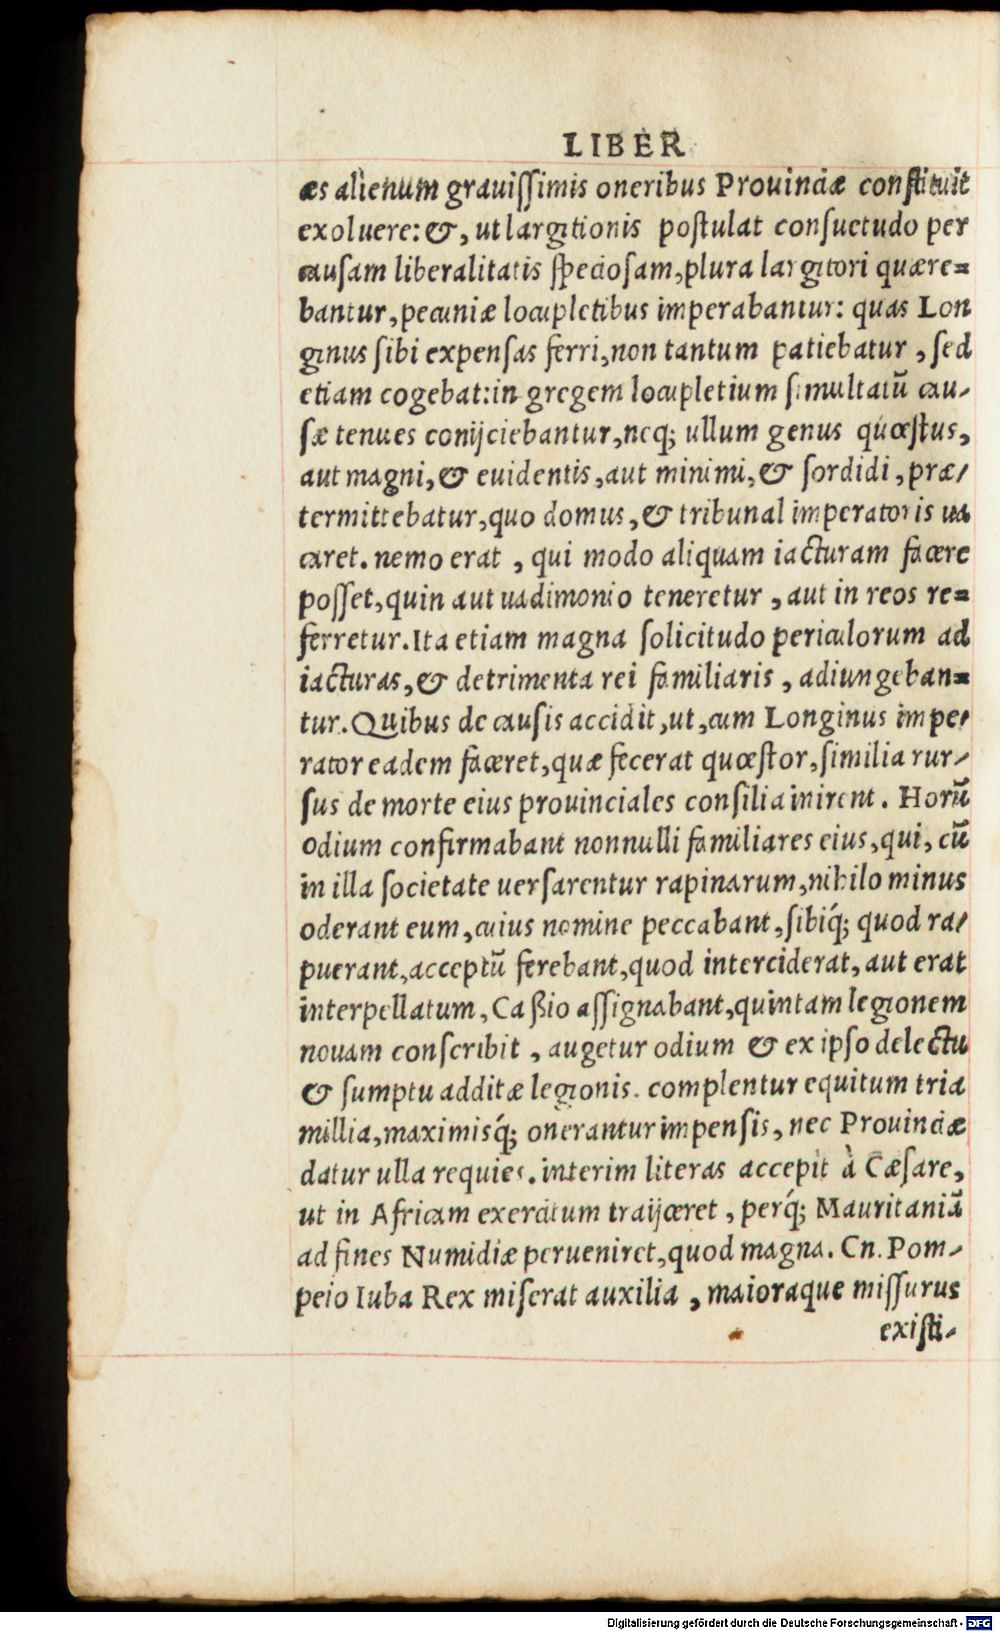 LIBER
æs alienum grauissimis oneribus Prouinciæ constituit
exoluere: &, ut largitionis postulat consuetudo per
causam liberalitatis speciosam, plura largitori quære=
bantur, pecuniæ locupletibus imperabantur: quas Lon
ginus sibi expensas ferri, non tantum patiebatur, sed
etiam cogebat: in gregem locupletium simultatū cau-
sæ tenues conijciebantur, neq; ullum genus quæstus,
aut magni, & euidentis, aut minimi, & sordidi, præ-
termittebatur, quo domus, & tribunal imperatoris ua
caret. nemo erat, qui modo aliquam iacturam facere
posset, quin aut uadimonio teneretur, aut in reos re=
ferretur. Ita etiam magna solicitudo periculorum ad
iacturas, & detrimenta rei familiaris, adiungeban=
tur. Quibus de causis accidit, ut, cum Longinus impe-
rator eadem faceret, quæ fecerat quæstor, similia rur-
sus de morte eius prouinciales consilia inirent. Horū
odium confirmabant nonnulli familiares eius, qui, cū
in illa societate uersarentur rapinarum, nihilo minus
oderant eum, cuius nomine peccabant, sibiq́; quod ra-
puerant, acceptū ferebant, quod interciderat, aut erat
interpellatum, Caßio assignabant, quintam legionem
nouam conscribit, augetur odium & ex ipso delectu
& sumptu additæ legionis. complentur equitum tria
millia, maximisq́; onerantur impensis, nec Prouinciæ
datur ulla requies. interim literas accepit à Cæsare,
ut in Africam exercitum traijceret, perq́; Mauritaniā
ad fines Numidiæ perueniret, quod magna. Cn. Pom-
peio Iuba Rex miserat auxilia, maioraque missurus
existi-
Digitalisierung gefördert durch die Deutsche Forschungsgemeinschaft - DFG